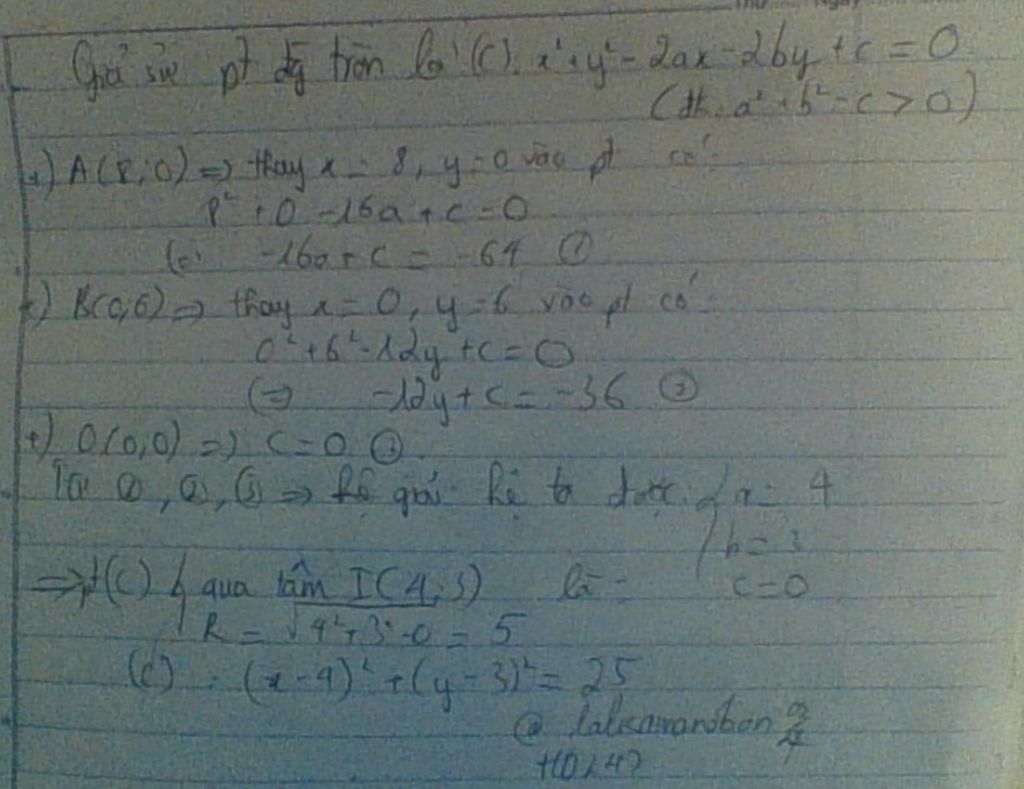 Giả sử pt đg tròn là (C): x²+y²-2ax-2by+c=0
(đk: a²+b²-c>0)
+) A(8;0) => thay x=8, y=0 vào pt có:
8²+0-16a+c=0
(=) -16a+c=-64 ①
+) B(0,6) => thay x=0, y=6 vào pt có:
0²+6²-12y+c=0
(=) -12y+c=-36 ②
+) O(0,0) => c=0 ③
Từ ①, ②, ③ => hệ giải hệ ta được: a=4
b=3
=> pt(C) { qua tâm I(4;3) là: c=0
R=√4²+3²-0=5
(C): (x-4)²+(y-3)²=25